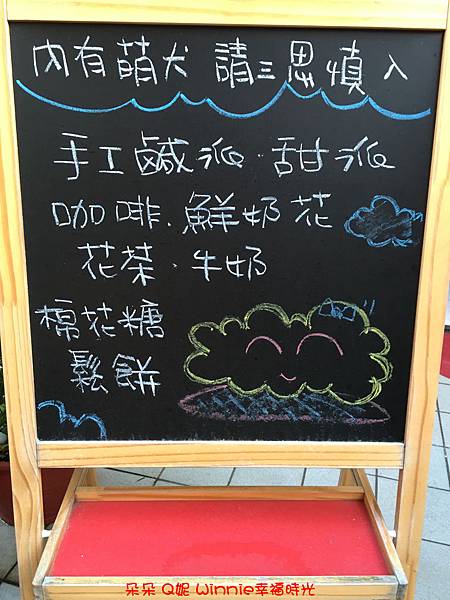 內有萌犬 請三思慎入
手工鹹派．甜派
咖啡．鮮奶花
花茶．牛奶
棉花糖
鬆餅
朵朵 Q妮 Winnie幸福時光